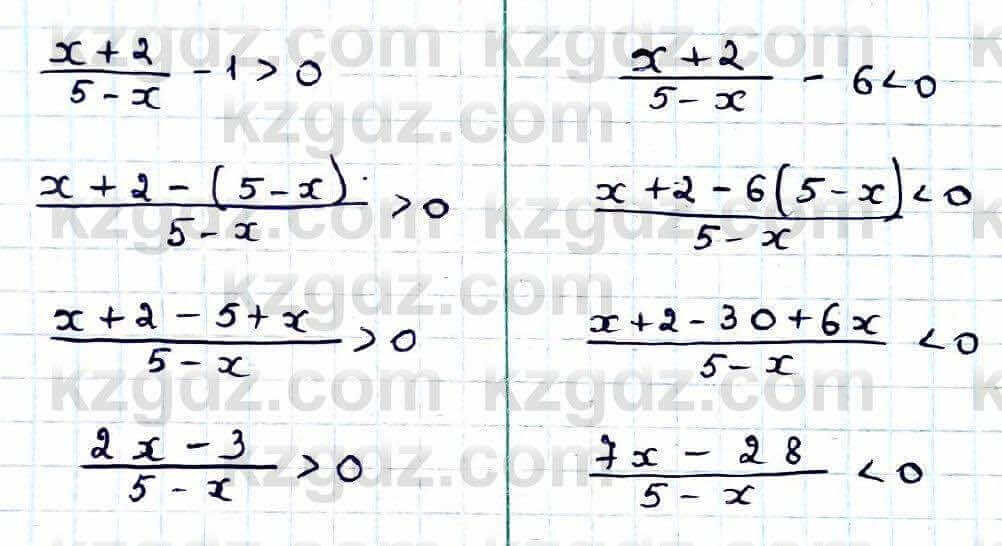 (x+2)/(5-x) - 1 > 0
(x+2-(5-x))/(5-x) > 0
(x+2-5+x)/(5-x) > 0
(2x-3)/(5-x) > 0
(x+2)/(5-x) - 6 < 0
(x+2-6(5-x))/(5-x) < 0
(x+2-30+6x)/(5-x) < 0
(7x-28)/(5-x) < 0
kzgdz.com kzgdz.com
kzgdz.com
kzgdz.com kzgdz.com
kzgdz.com
kzgdz.com kzgdz.com
kzgdz.com